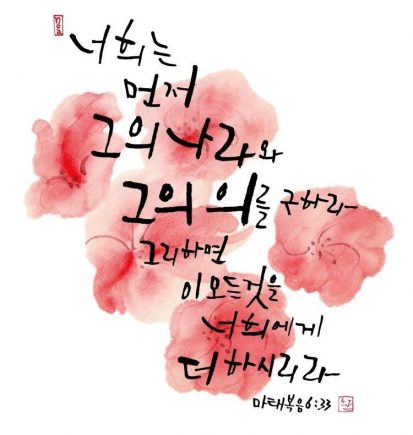 너희는
먼저
그의 나라와
그의 의를 구하라
그리하면
이 모든것을
너희에게
더하시리라
마태복음 6:33